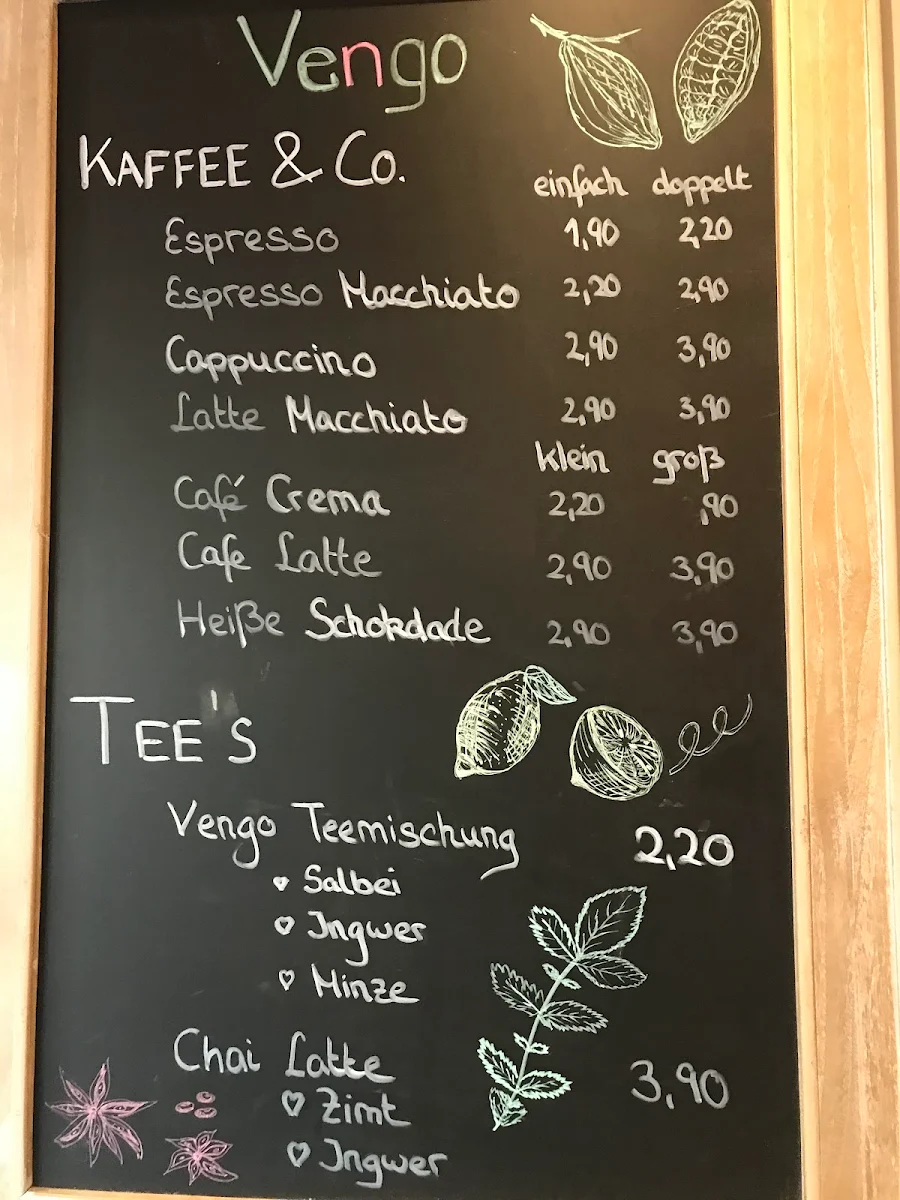 Vengo
KAFFEE & Co.
einfach doppelt
Espresso 1,90 2,20
Espresso Macchiato 2,20 2,90
Cappuccino 2,90 3,90
Latte Macchiato 2,90 3,90
klein groß
Café Crema 2,20 ,90
Cafe Latte 2,90 3,90
Heiße Schokolade 2,90 3,90
TEE'S
Vengo Teemischung 2,20
♡ Salbei
♡ Ingwer
♡ Minze
Chai Latte 3,90
♡ Zimt
♡ Ingwer